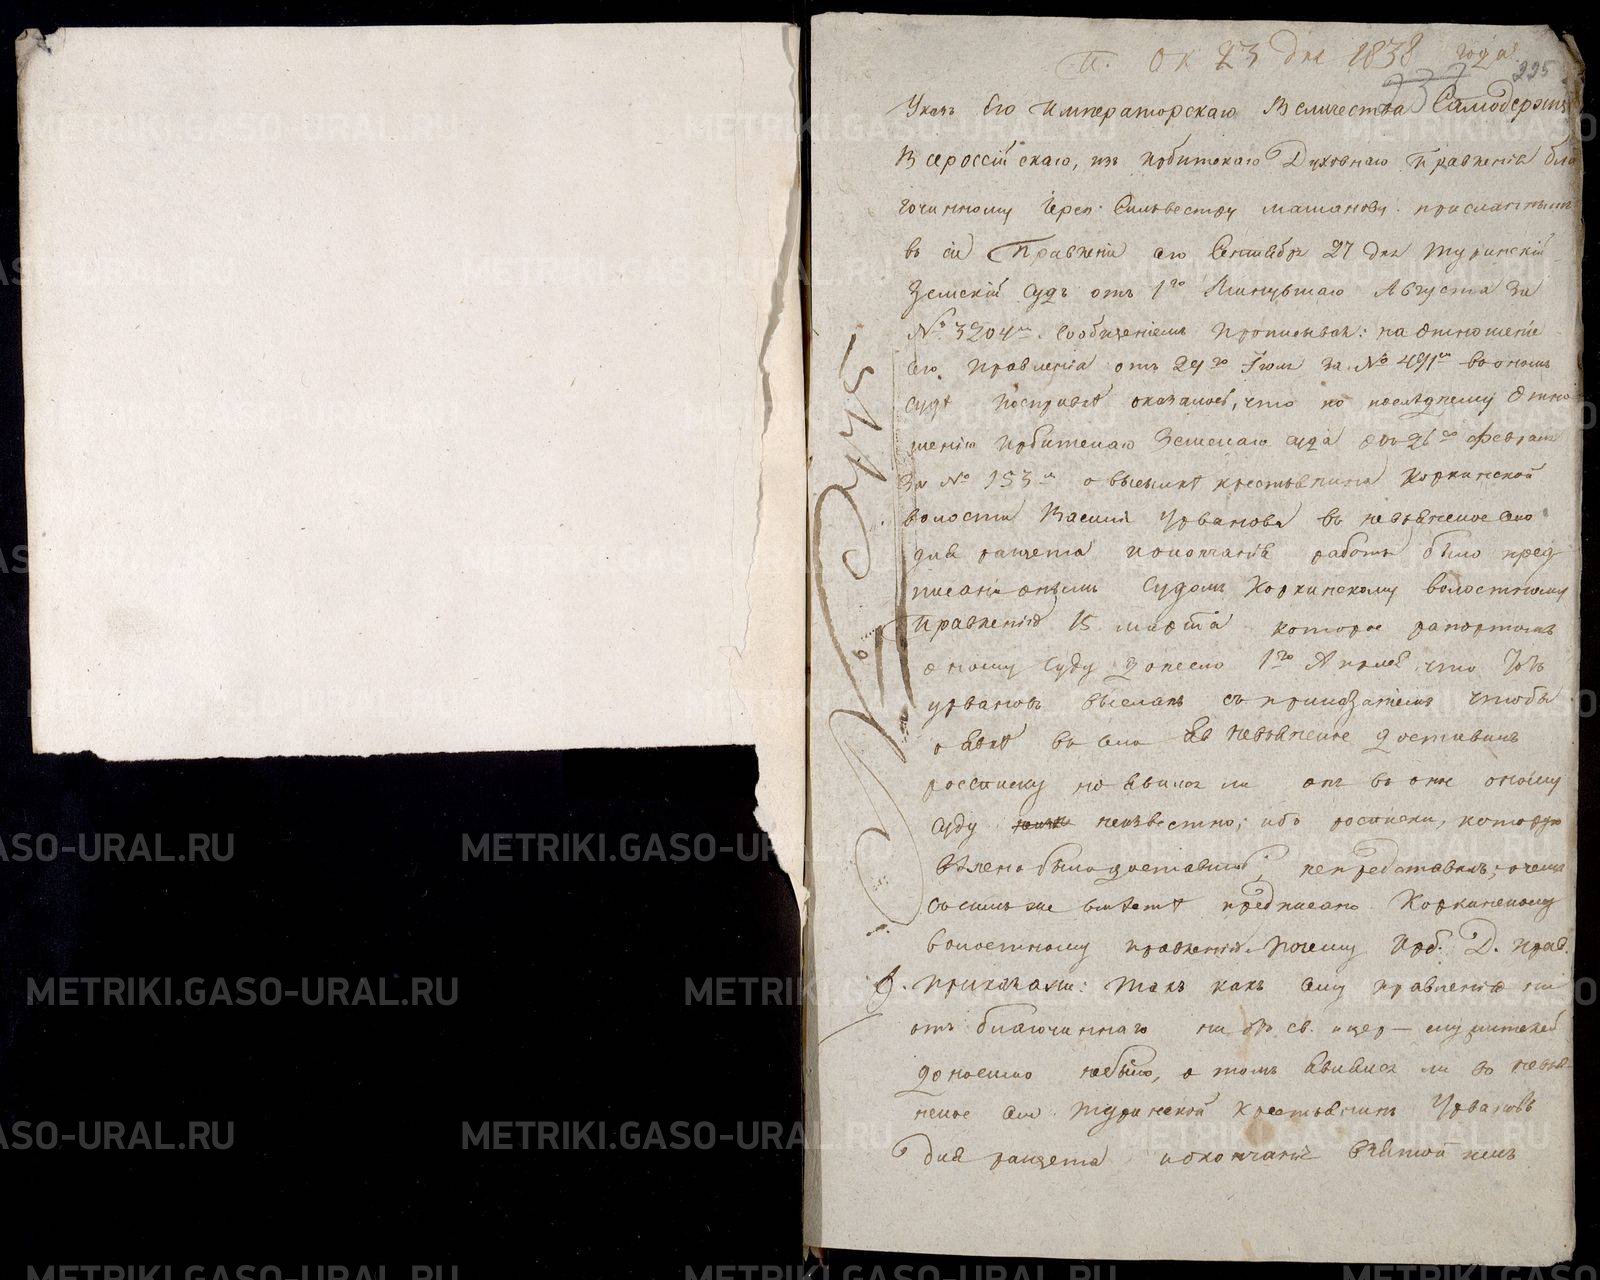 П. Ок 23 дня 1838 года.
225
Указъ Его Императорскаго Величества Самодержца
Всероссійскаго, изъ Ирбитскаго Духовнаго Правленія бла
гочинному Іерею Сильвестру присланнымъ
въ сіе Правленіе сего Сентября 27 дня Туринскій
Земскій Судъ отъ 1го Минувшаго Августа за
№ 3204м. сообщеніемъ прописывая: на отношеніе
сего Правленія отъ 29го Іюля за № 491м во ономъ
судѣ по справкѣ оказалось, что по послѣднему отно
шенію Ирбитскаго Земскаго суда отъ 26го февраля
за № 153м о высылкѣ крестьянина Коркинской
волости Василія Урванова въ Невьянское село
для разчета и окончанія работы было пред
писано онымъ Судомъ Коркинскому волостному
Правленію 15 марта которое рапортомъ
оному Суду донесло 1го Апреля, что
Урвановъ высланъ съ приказаніемъ чтобы
о явкѣ въ село Невьянское доставилъ
росписку но явился ли онъ во оное оному
суду неизвестно; ибо росписки, которую
велено было доставить, непредставилъ; о чемъ
съ симъ же вместѣ предписано Коркинскому
волостному правленію. Почему Ирб. Д. прав.
приказали: Такъ какъ сему правленію ни
отъ благочиннаго ни отъ св. и цер-служителей
доносимо небыло, о томъ явился ли въ Невья
нское село Туринской Крестьянинъ Урвановъ
для разчета и окончанія взятой имъ
2445
METRIKI.GASO-URAL.RU